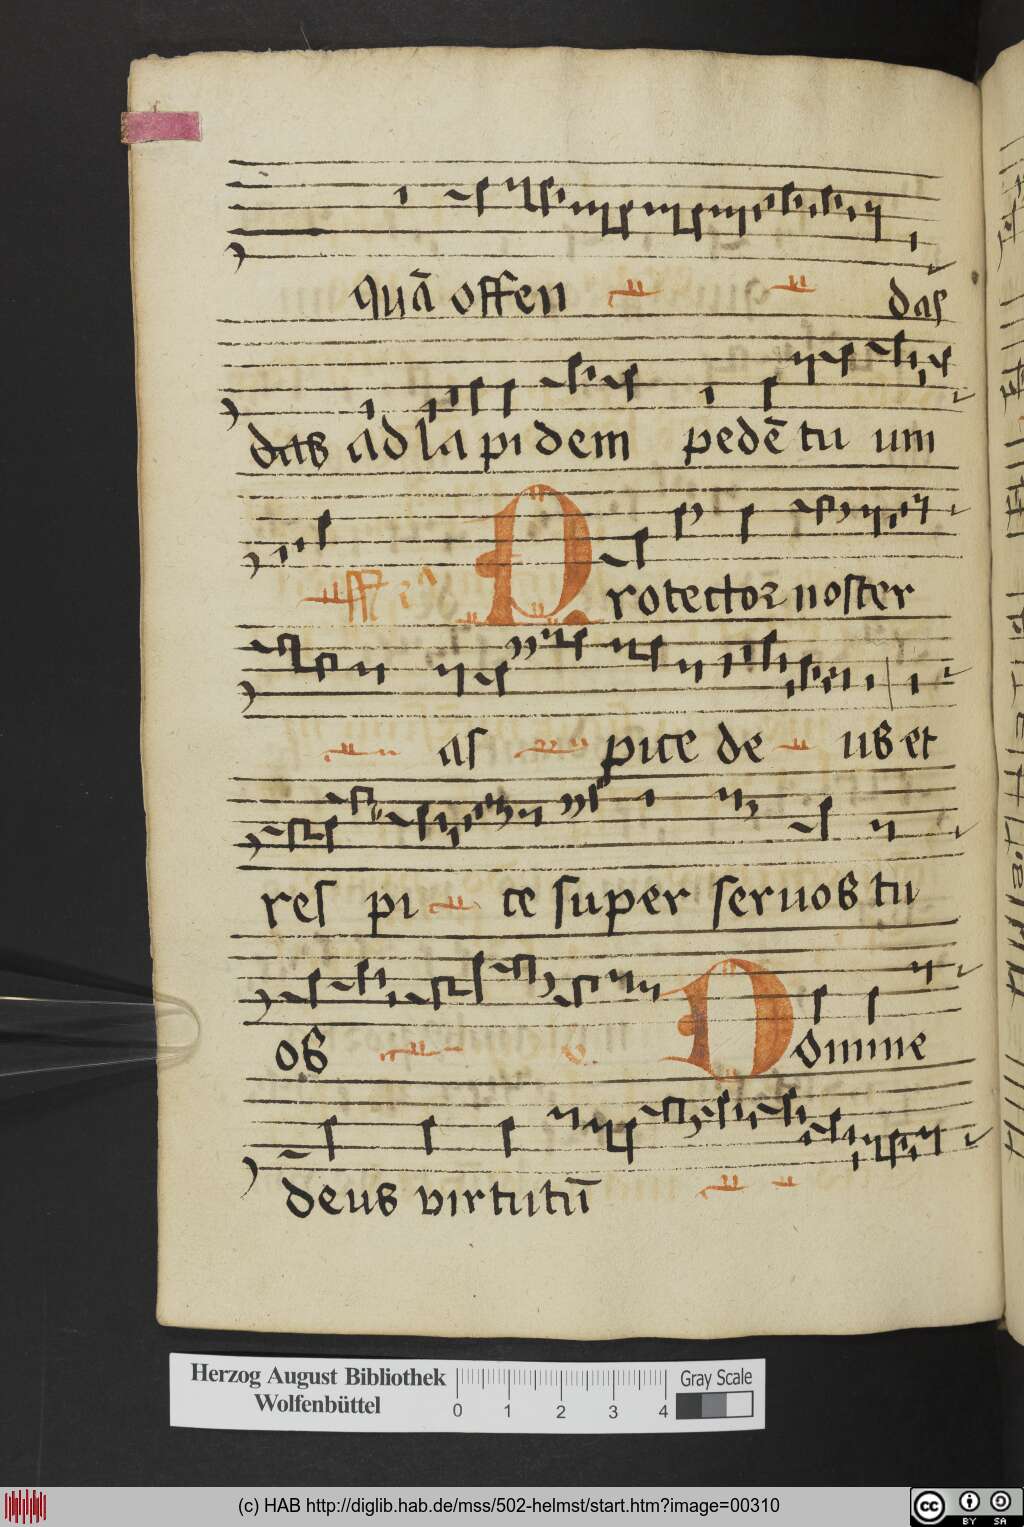 quā offen das
das ad lapidem pedē tu um
Protector noster
as pice de us et
res pi ce super seruos tu
os Domine
deus virtutū
Herzog August Bibliothek
Wolfenbüttel
0 1 2 3 4
Gray Scale
(c) HAB http://diglib.hab.de/mss/502-helmst/start.htm?image=00310
cc BY SA